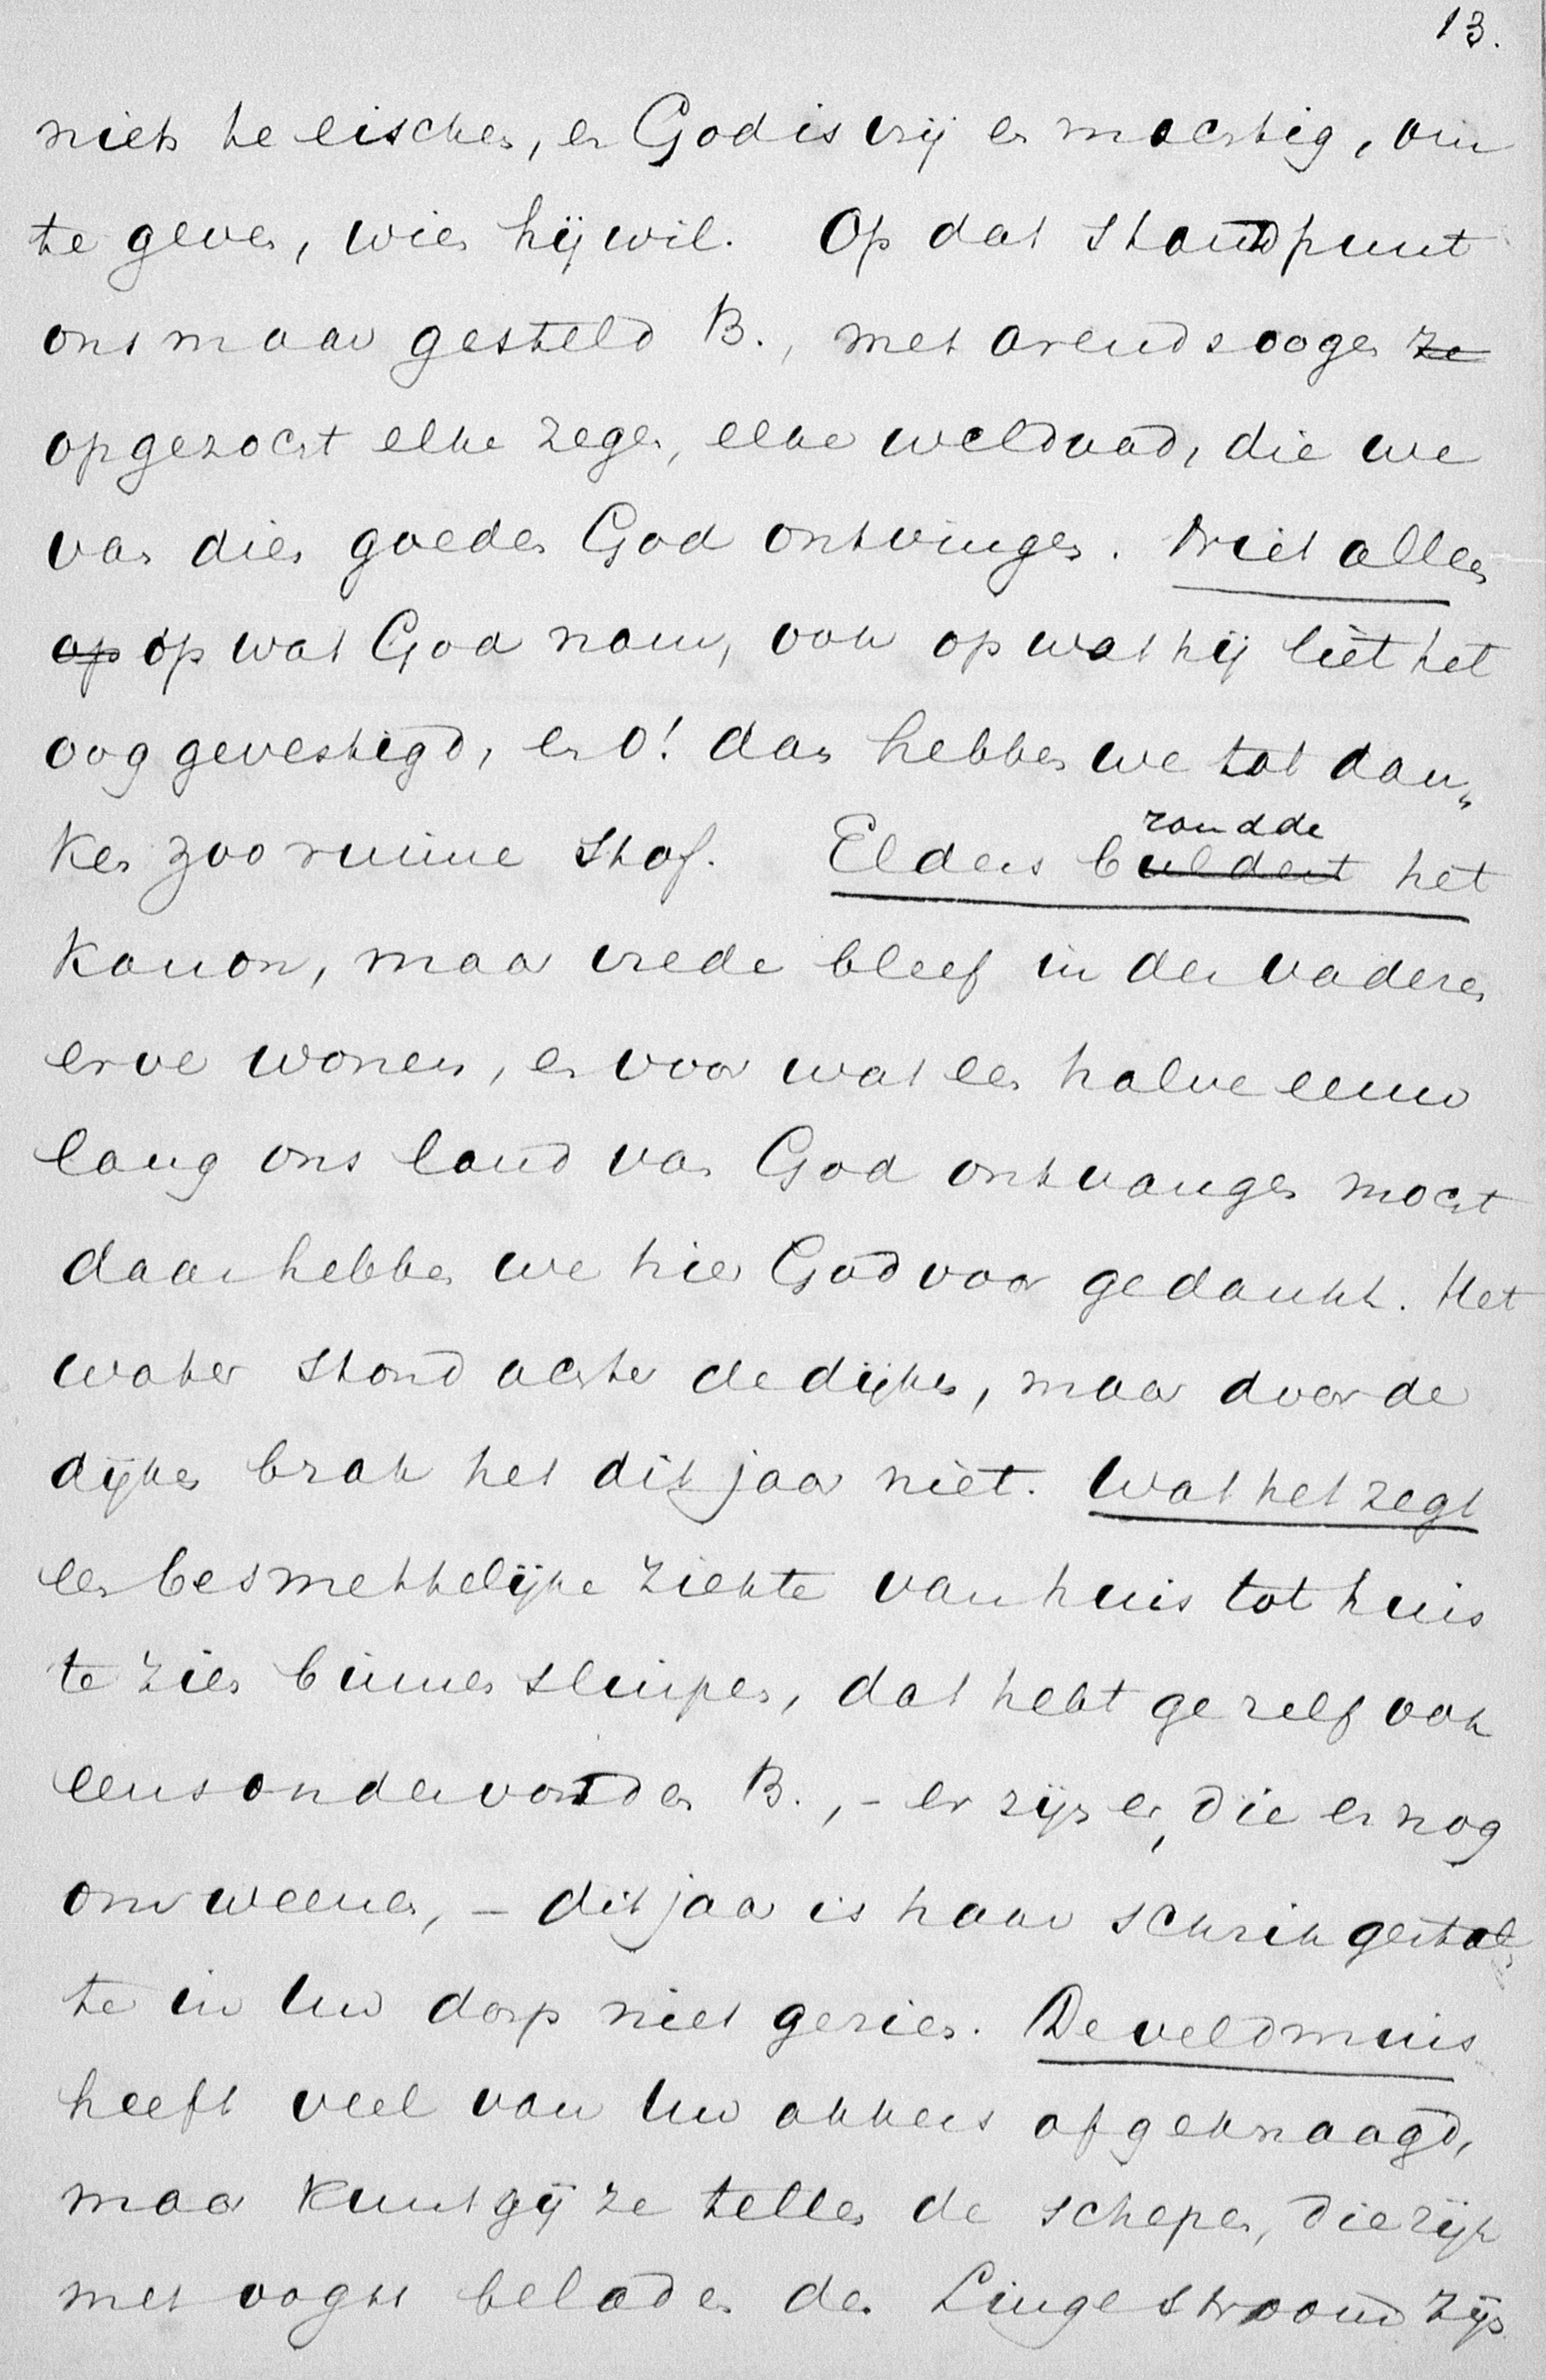 13.
niets te eischen, en God is vrij en machtig, om
te geven, wien hij wil. Op dat standpunt
ons maar gesteld B., met arendsoogen ze
opgezocht elke zegen, elke weldaad, die we
van dien goeden God ontvingen. Niet alleen
op óp wat God nam, ook op wat hij liet het
oog gevestigd, en o! dan hebben we tot dan„
ken zoo ruime stof. Elders buldert rondde het
kanon, maar vrede bleef in der vaderen
erve wonen, en voor wat een halve eeuw
lang ons land van God ontvangen mocht
daar hebben we hier God voor gedankt. Het
water stond achter de dijken, maar door de
dijken brak het dit jaar niet. Wat het zegt
een besmettelijke ziekte van huis tot huis
te zien binnen sluipen, dat hebt ge zelf ook
eens ondervonden B., - er zijn er, die er nog
om weenen, - dit jaar is haar schrikgestal„
te in Uw dorp niet gezien. De veldmuis
heeft veel van Uw akkers afgeknaagd,
maar kunt gij ze tellen de schepen, die rijk
met oogst beladen den Lingestroom zijn